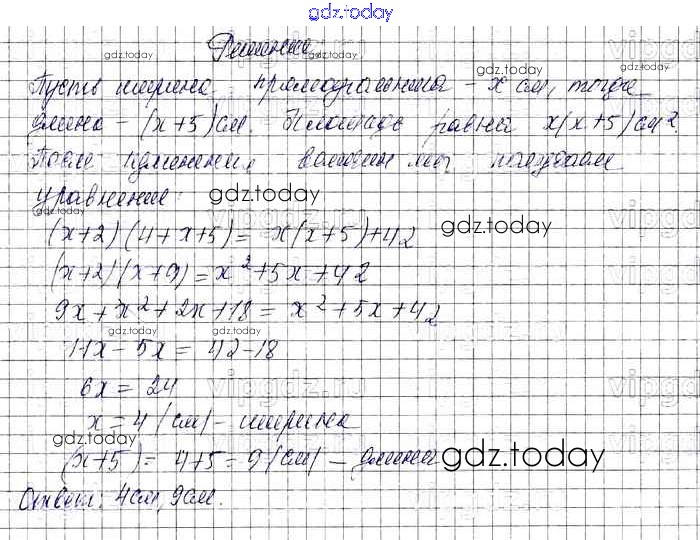 gdz.today
Решение
gdz.today
gdz.today
gdz.today
Пусть ширина прямоугольника - x см, тогда
gdz.today
длина - (x+5) см. Площадь равна x(x+5) см².
После изменения величин мы получаем
уравнение:
gdz.today
gdz.today
gdz.today
(x+2)(4+x+5) = x(x+5)+42
(x+2)(x+9) = x²+5x+42
9x+x²+2x+18 = x²+5x+42
gdz.today
gdz.today
11x-5x = 42-18
6x = 24
x = 4 (см) - ширина
gdz.today
(x+5) = 4+5 = 9 (см) - длина
gdz.today
Ответ: 4см, 9см.